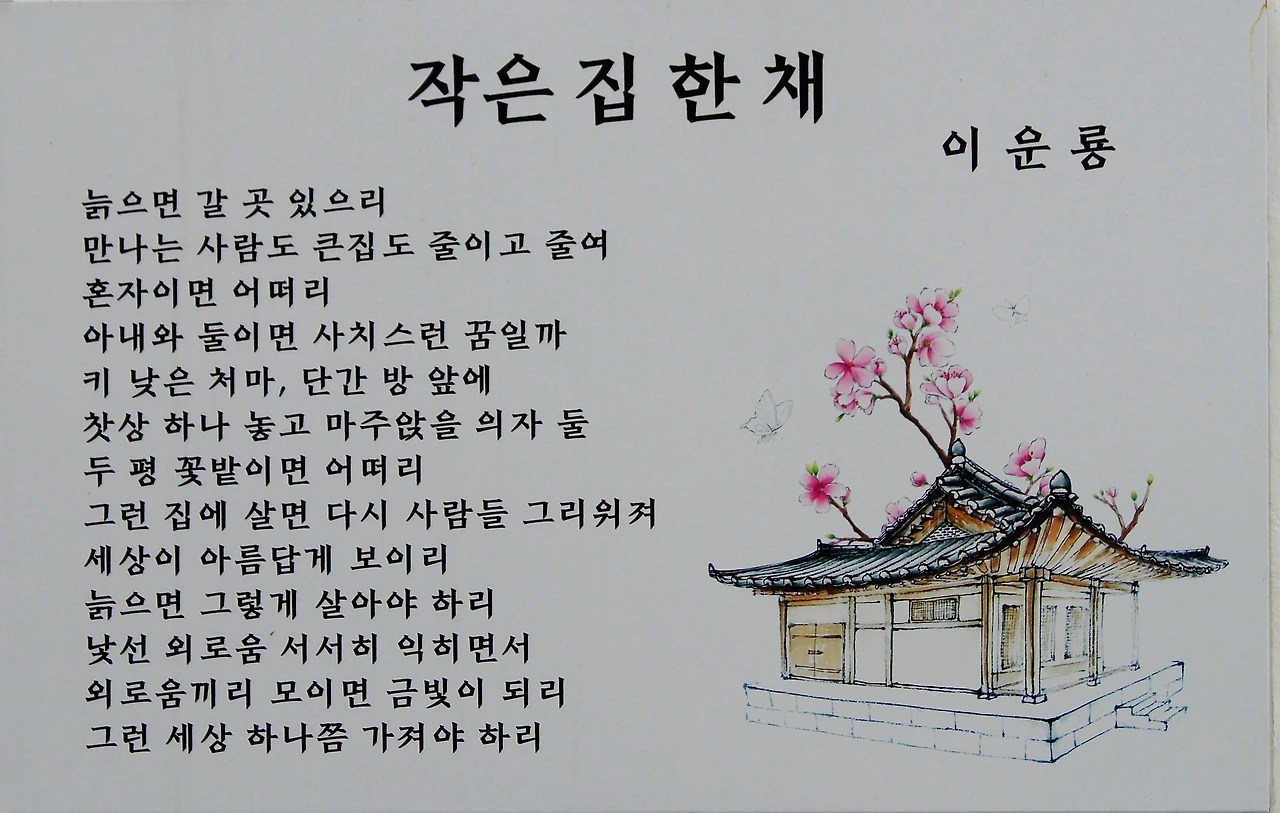 작은 집 한 채
이 운 룡
늙으면 갈 곳 있으리
만나는 사람도 큰집도 줄이고 줄여
혼자이면 어떠리
아내와 둘이면 사치스런 꿈일까
키 낮은 처마, 단간 방 앞에
찻상 하나 놓고 마주앉을 의자 둘
두 평 꽃밭이면 어떠리
그런 집에 살면 다시 사람들 그리워져
세상이 아름답게 보이리
늙으면 그렇게 살아야 하리
낯선 외로움 서서히 익히면서
외로움끼리 모이면 금빛이 되리
그런 세상 하나쯤 가져야 하리